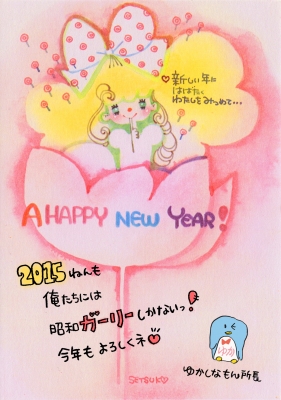 ♡新しい年に
はばたく
わたしをみつめて…
A HAPPY NEW YEAR!
2015ねんも
俺たちには
昭和ガーリーしかないっ!
今年もよろしくネ♥
SETSUKO
ゆか
ゆかしなもん所長